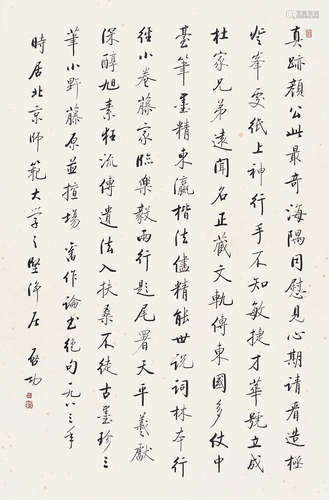 真跡顏公此最奇海隅同慰見心期請看造極
登峯處紙上神行手不知敏捷才華號立成
杜家兄弟遠聞名正藏文軌傳東國多仗中
臺筆墨精東瀛楷法儘精能世說詞林本行
經小卷藤家臨樂毅兩行題尾署天平羲獻
深醇旭素狂流傳遺法入扶桑不徒古墨珍三
筆小野藤原並擅場 舊作論書絕句一九八三年
時居北京師範大学之堅淨居 启功